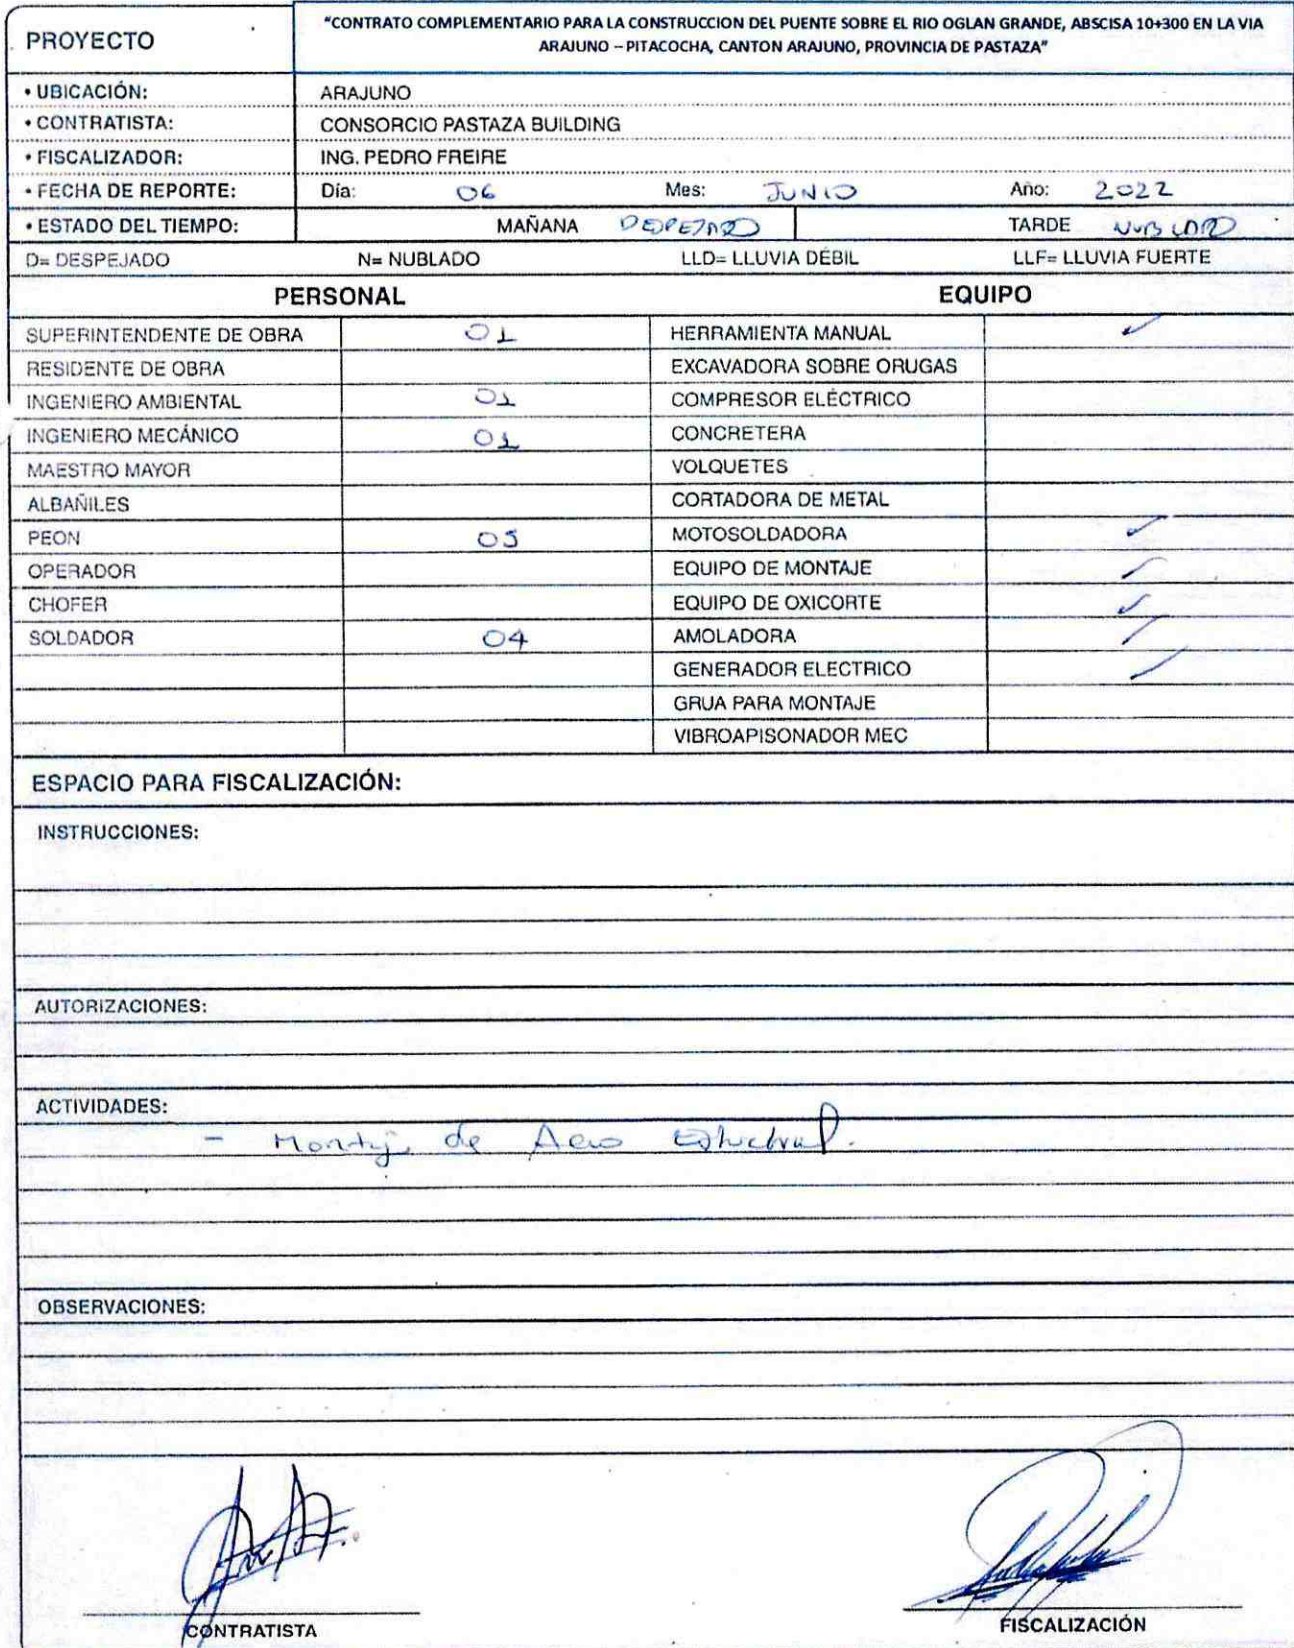 PROYECTO
"CONTRATO COMPLEMENTARIO PARA LA CONSTRUCCION DEL PUENTE SOBRE EL RIO OGLAN GRANDE, ABSCISA 10+300 EN LA VIA
ARAJUNO – PITACOCHA, CANTON ARAJUNO, PROVINCIA DE PASTAZA"
• UBICACIÓN: ARAJUNO
• CONTRATISTA: CONSORCIO PASTAZA BUILDING
• FISCALIZADOR: ING. PEDRO FREIRE
• FECHA DE REPORTE: Día: 06 Mes: JUNIO Año: 2022
• ESTADO DEL TIEMPO: MAÑANA DESPEJADO TARDE NUBLADO
D= DESPEJADO N= NUBLADO LLD= LLUVIA DÉBIL LLF= LLUVIA FUERTE
PERSONAL EQUIPO
SUPERINTENDENTE DE OBRA 01 HERRAMIENTA MANUAL ✓
RESIDENTE DE OBRA EXCAVADORA SOBRE ORUGAS
INGENIERO AMBIENTAL 01 COMPRESOR ELÉCTRICO
INGENIERO MECÁNICO 01 CONCRETERA
MAESTRO MAYOR VOLQUETES
ALBAÑILES CORTADORA DE METAL
PEON 05 MOTOSOLDADORA ✓
OPERADOR EQUIPO DE MONTAJE ✓
CHOFER EQUIPO DE OXICORTE ✓
SOLDADOR 04 AMOLADORA ✓
GENERADOR ELECTRICO ✓
GRUA PARA MONTAJE
VIBROAPISONADOR MEC
ESPACIO PARA FISCALIZACIÓN:
INSTRUCCIONES:
AUTORIZACIONES:
ACTIVIDADES:
- Montaje de Acero Estructural.
OBSERVACIONES:
CONTRATISTA FISCALIZACIÓN